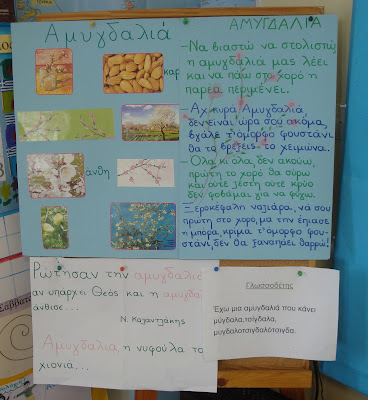 Αμυγδαλιά
καρ
άνθη
ΑΜΥΓΔΑΛΙΑ
-Να βιαστώ να στολιστώ
η αμυγδαλιά μας λέει
και να πάω στο χορό η
παρέα περιμένει.
-Αχ κυρά Αμυγδαλιά
δεν είναι ώρα σου ακόμα,
βγάλε τ'όμορφο φουστάνι
θα το βρέξεις το χειμώνα.
-Όλα κι όλα δεν ακούω,
πρώτη το χορό θα σύρω
και ούτε ζέστη ούτε κρύο
δεν φοβάμαι για να φύγω.
Ξεροκέφαλη ναζιάρα, νά σου
πρώτη στο χορό, μα την έπιασε
η μπόρα, κρίμα τ'όμορφο φου-
στάνι, δεν θα ξαναπάει θαρρώ!
Ρώτησαν την αμυγδαλιά
αν υπάρχει Θεός και η αμυγδα
άνθισε...
Ν. Καζαντζάκης
Αμυγδαλιά, η νυφούλα το
χιονια...
Γλωσσοδέτης
Έχω μια αμυγδαλιά που κάνει
μύγδαλα,τσίγδαλα,
μυγδαλοτσιγδαλότσιγδα.